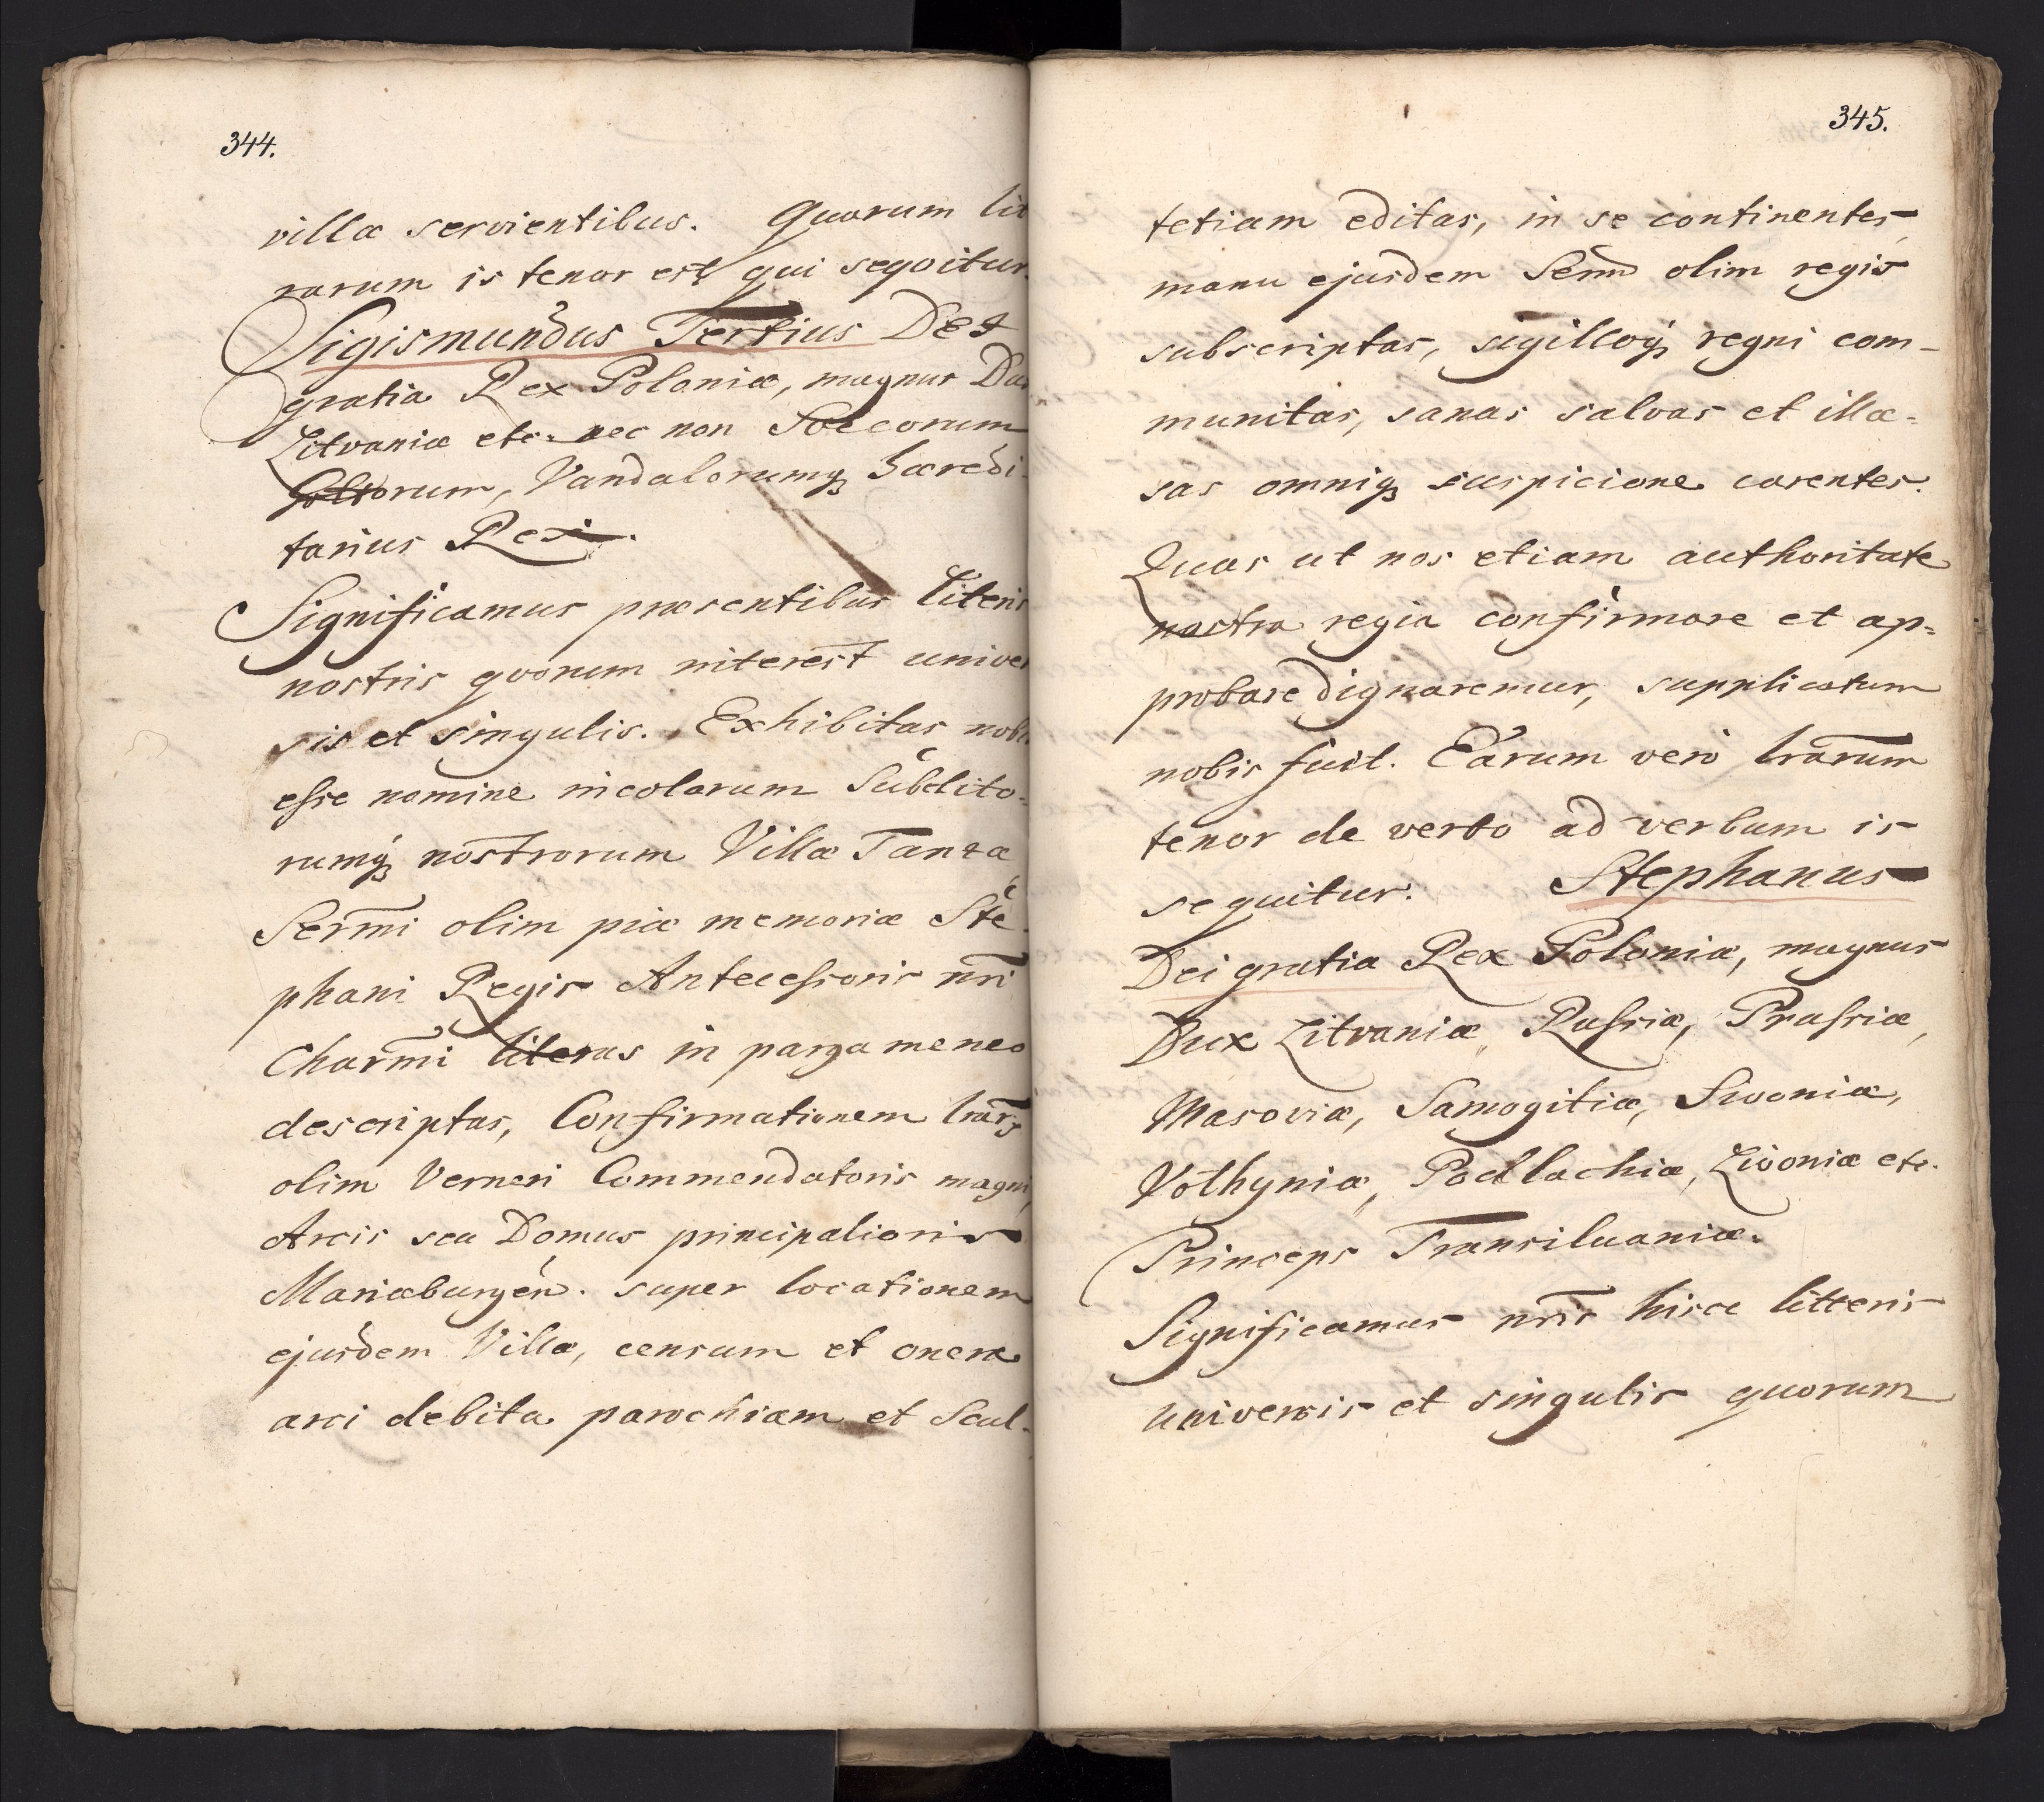 344.
villæ servientibus. Quorum lit
rarum is tenor est qui seqvitur.
Sigismundus Tertius Dei
gratia Rex Poloniæ, magnus Dux
Litvaniæ etc. nec non Svecorum
Gottorum, Vandalorumq hæredi-
tarius Rex.
Significamus præsentibus literis
nostris qvorum interest univer
sis et singulis. Exhibitas nobis
esse nomine incolarum Subdito-
rumq nostrorum Villæ Tanzæ
Sermi olim piæ memoriæ Ste-
phani Regis Antecessoris nri
Charmi literas in pargameneo
descriptas, Confirmationem lrar
olim Verneri Commendatoris magni,
Arcis seu Domus principalioris
Mariæburgen. super locationem
ejusdem Villæ, censum et onera
arci debita parochiam et Scul-
345.
tetiam editas, in se continentes,
manu ejusdem Senmi olim regis
subscriptas, sigilloq regni com-
munitas, sanas salvas et illæ-
sas omniq suspicione carentes.
Quas ut nos etiam authoritate
nostra regia confirmare et ap-
probare dignaremur, supplicatum
nobis fuit. Earum vero lrarum
tenor de verbo ad verbum is
sequitur. Stephanus
Dei gratia Rex Poloniæ, magnus
Dux Litvaniæ, Russiæ, Prussiæ,
Masoviæ, Samogitiæ, Kivoniæ,
Volhyniæ, Podlachiæ, Livoniæ etc.
Princeps Transilvaniæ.
Significamus nris hisce litteris
universis et singulis quorum